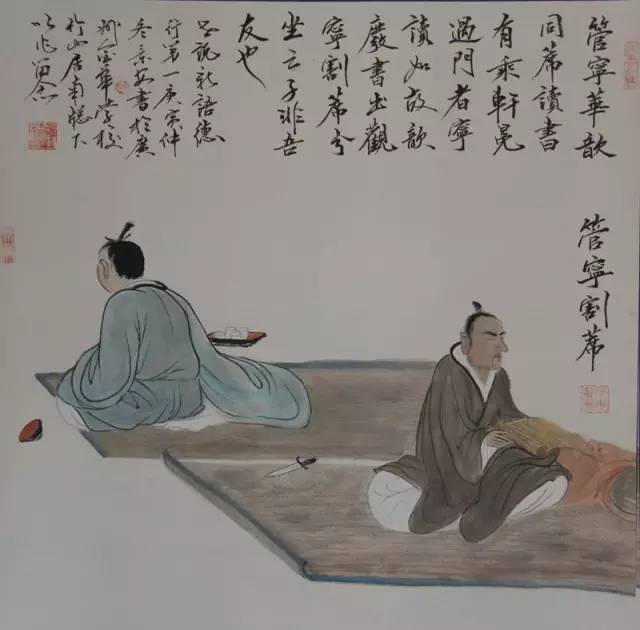 管寧華歆
同席讀書
有乘軒冕
過門者寧
讀如故歆
廢書出觀
寧割席分
坐云子非吾
友也
說新語德
行第一庚寅仲
冬景安書於廣
州金華學校
山居南牕下
以作留念
管寧割席